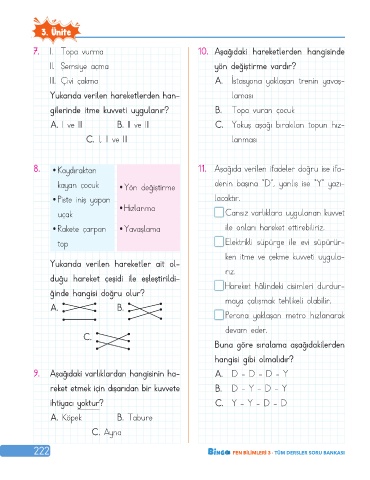 3. Ünite
7. I. Topa vurma
II. Şemsiye açma
III. Çivi çakma
Yukarıda verilen hareketlerden han-
gilerinde itme kuvveti uygulanır?
A. I ve III B. II ve III
C. I, II ve III
8. • Kaydıraktan
kayan çocuk
• Piste iniş yapan
uçak
• Rakete çarpan
top
• Yön değiştirme
• Hızlanma
• Yavaşlama
Yukarıda verilen hareketler ait ol-
duğu hareket çeşidi ile eşleştirildi-
ğinde hangisi doğru olur?
A. B.
C.
9. Aşağıdaki varlıklardan hangisinin ha-
reket etmek için dışarıdan bir kuvvete
ihtiyacı yoktur?
A. Köpek B. Tabure
C. Ayna
10. Aşağıdaki hareketlerden hangisinde
yön değiştirme vardır?
A. İstasyona yaklaşan trenin yavaş-
laması
B. Topa vuran çocuk
C. Yokuş aşağı bırakılan topun hız-
lanması
11. Aşağıda verilen ifadeler doğru ise ifa-
denin başına "D", yanlış ise "Y" yazı-
lacaktır.
Cansız varlıklara uygulanan kuvvet
ile onları hareket ettirebiliriz.
Elektrikli süpürge ile evi süpürür-
ken itme ve çekme kuvveti uygula-
rız.
Hareket hâlindeki cisimleri durdur-
maya çalışmak tehlikeli olabilir.
Perona yaklaşan metro hızlanarak
devam eder.
Buna göre sıralama aşağıdakilerden
hangisi gibi olmalıdır?
A. D - D - D - Y
B. D - Y - D - Y
C. Y - Y - D - D
222
BİNGO FEN BİLİMLERİ 3 - TÜM DERSLER SORU BANKASI